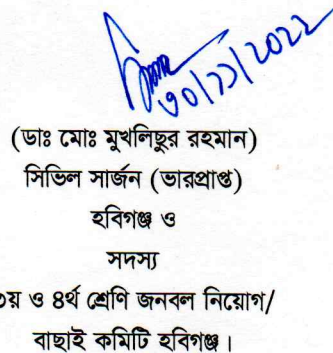 ৩০/১১/২০২২
(ডাঃ মোঃ মুখলিছুর রহমান)
সিভিল সার্জন (ভারপ্রাপ্ত)
হবিগঞ্জ ও
সদস্য
৩য় ও ৪র্থ শ্রেণি জনবল নিয়োগ/
বাছাই কমিটি হবিগঞ্জ।